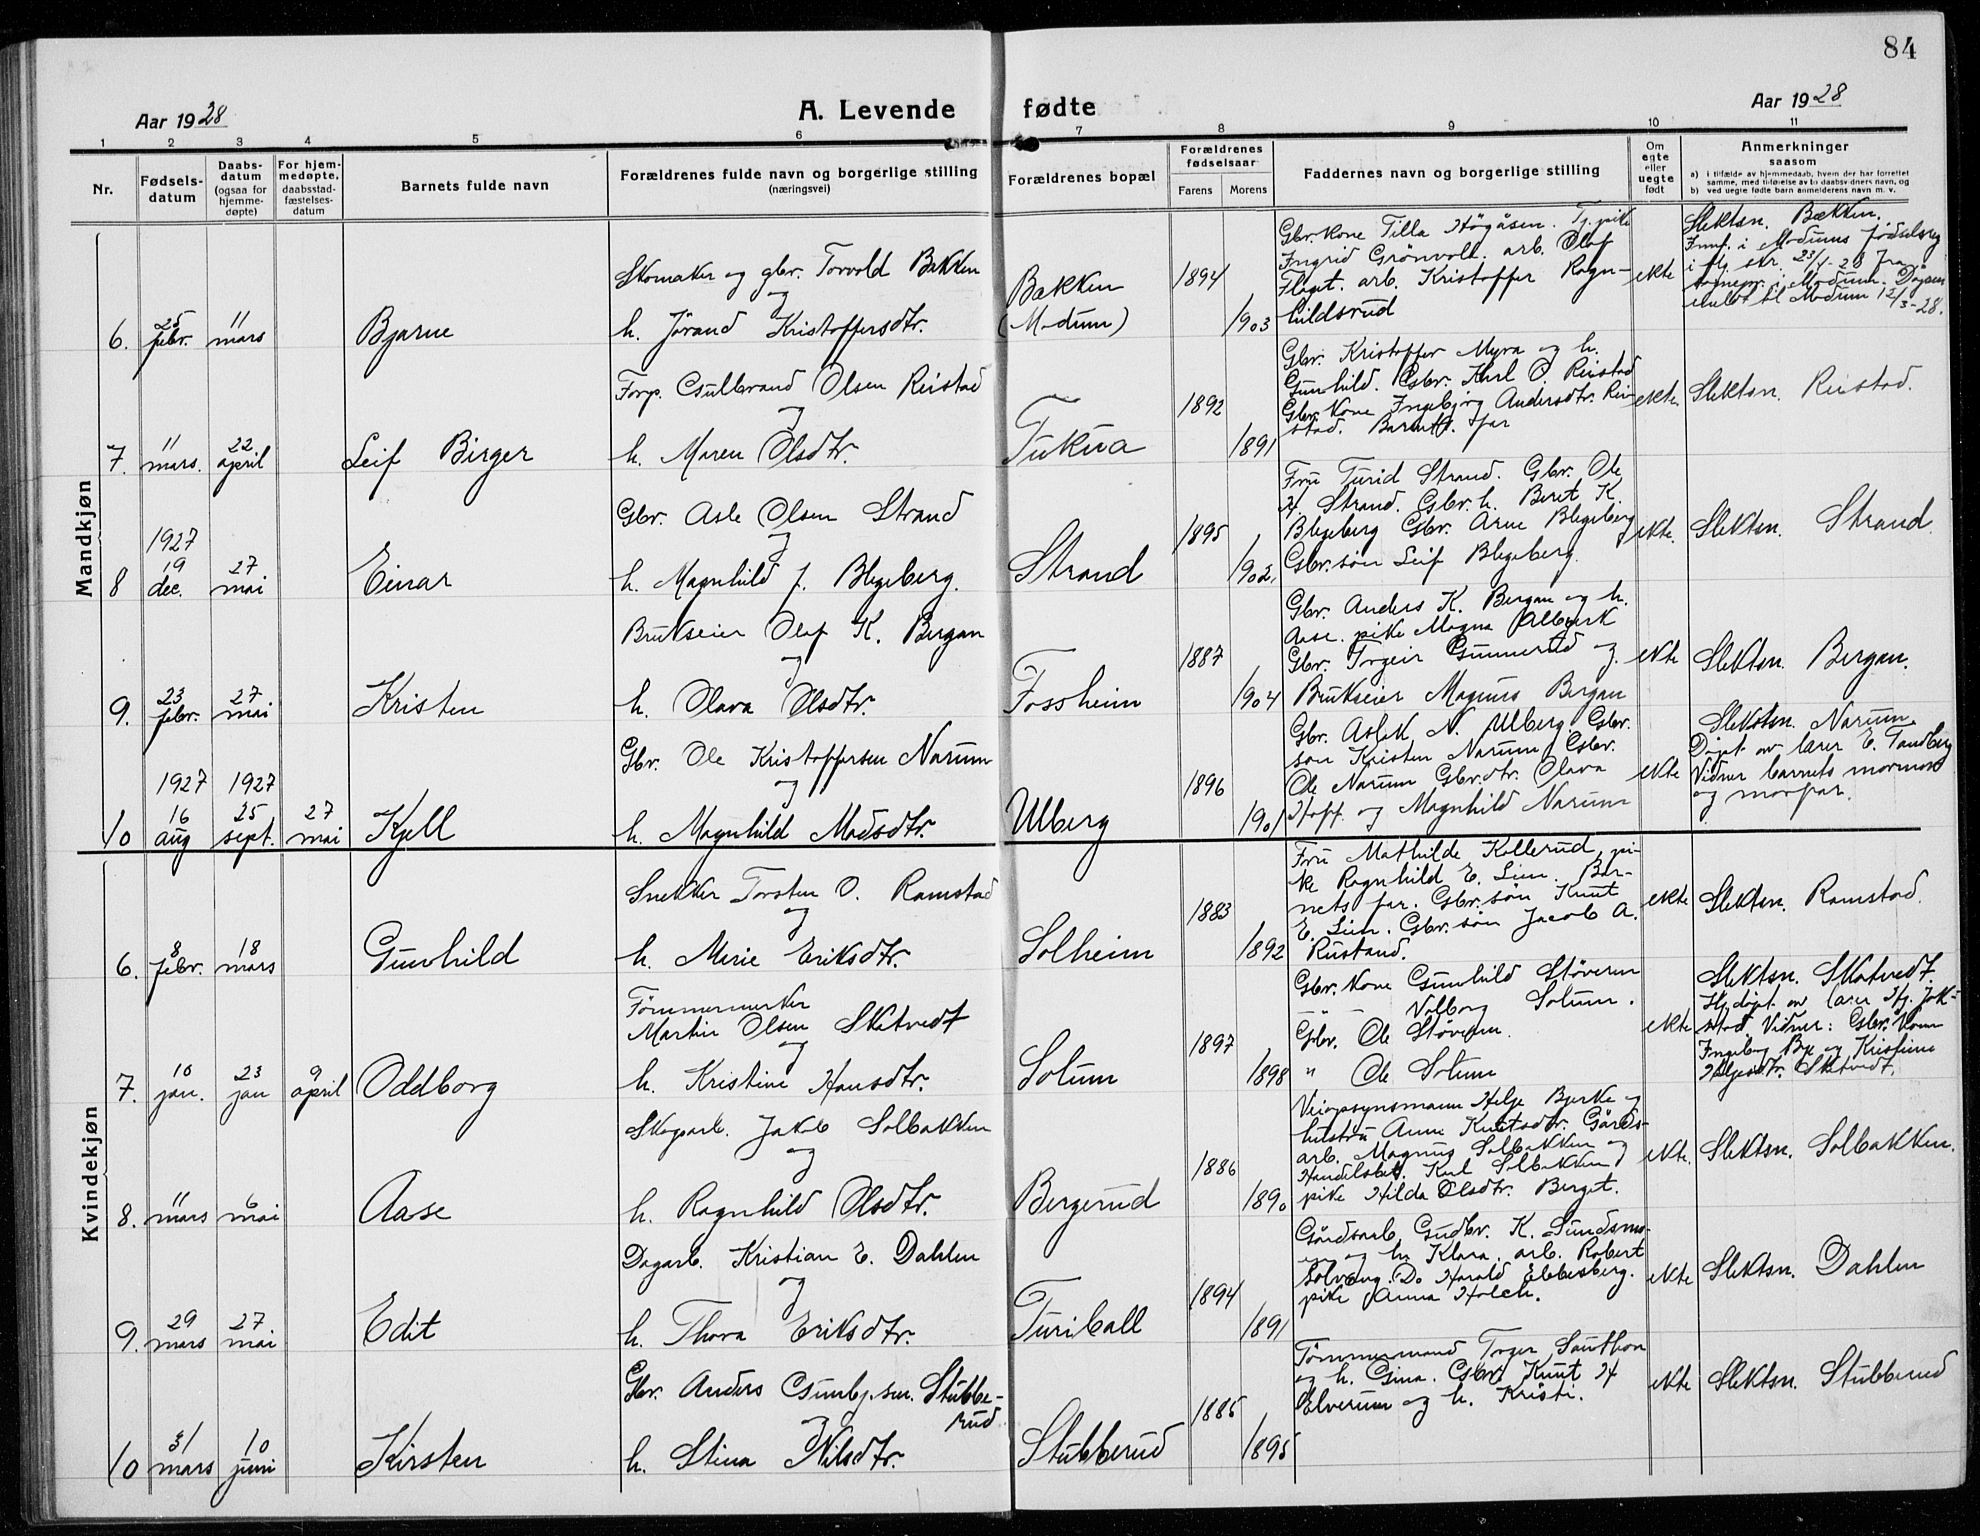 84
Aar 1928
A. Levende fødte
Aar 1928
1 2 3 4 5 6 7 8 9 10 11
Nr.
Fødsels-
datum
Daabs-
datum
(ogsaa for
hjemme-
døpte)
For hjem-
medøpte,
daabsstad-
fæstelses-
datum
Barnets fulde navn
Forældrenes fulde navn og borgerlige stilling
(næringsvei)
Forældrenes bopæl
Forældrenes
fødselsaar
Farens Morens
Faddernes navn og borgerlige stilling
Om
egte
eller
uegte
født
Anmerkninger
saasom
a) i tilfælde av hjemmedaab, hvem der har forrettet
samme, med tilføielse av to daabsvidners navn, og
b) ved uegte født barn anmelderens navn m. v.
Mandkjøn
6. 25 febr. 11 mars
Bjarne
Skomaker og gbr. Torvald Bækken
og
h. Jørand Kristoffersdtr.
Bækken
(Modum)
1894
1903
Gbr. kone Tilla Høgåsen. Tj. pike
Ingrid Grønvold. arb. Olaf
Flaget. arb. Kristoffer Ragn-
hildsrud
ekte
Slektsn. Bækken.
Innf. i Modums fødselsreg
meldt til Modum 12/3-28.
7. 11 mars. 22 april
Leif Birger
Forp. Gulbrand Olsen Reistad
og
h. Maren Olsdtr.
Tukua
1892
1891
Gbr. Kristoffer Myra og h.
Gunhild. Gbr. Karl O. Reistad
Gbr. kone Ingebjørg Andersdtr. Rei-
stad. Barnets far
ekte.
Slektsn. Reistad.
8 1927 19 dec. 27 mai
Einar
Gbr. Asle Olsen Strand
og
h. Magnhild f. Blegeberg.
Strand
1895
1902
Fru Turid Strand. Gbr. Ole
H. Strand. Gbr. h. Beret K.
Blegeberg Gbr. Arne Blegeberg
Gbr. søn Leif Blegeberg.
ekte.
Slektsn. Strand
9. 23 febr. 27 mai
Kristen
Brukseier Olaf K. Bergan
og
h. Olava Olsdtr.
Fossheim
1887
1904
Gbr. Anders K. Bergan og h.
Aase. pike Magna Albjerk
Gbr. Torgeir Gunnerud og
Brukseier Magnus Bergan
ekte
Slektsn. Bergan.
10 1927 16 aug 1927 25 sept. 27 mai
Kjell
Gbr. Ole Kristoffersen Narum
og
h. Magnhild Madsdtr.
Ulberg
1896
1901
Gbr. Aslak N. Ulberg Gbr.
søn Kristen Narum Gbr.
Ole Narum Gbr.dtr. Olava
Hoff og Magnhild Narum
ekte
Slektsn. Narum.
Døpt av lærer E. Tandberg
Vidner barnets mormor
og morfar.
Kvindekjøn
6. 8 febr. 18 mars
Gunhild
Snekker Torsten O. Ramstad
og
h. Marie Eriksdtr.
Solheim
1883
1892
Fru Mathilde Kollerud, pi-
ke Ragnhild E. Lien. Bar-
nets far. Gbr. søn Knut
E. Lien. Gbr. søn Jacob A.
Rustand.
ekte
Slektsn. Ramstad.
7. 10 jan. 23 jan 9 april
Oddborg
Tømmermerker
Martin Olsen Skatvedt
og
h. Kristine Hansdtr.
Solum
1897
1898
Gbr. kone Gunhild Støveren
— " — Valborg Solum.
Gbr. Ole Støveren.
" Ole Solum
ekte
Slektsn. Skatvedt.
Hj. døpt av lærer Hj. Jok-
stad. Vidner: Gbr. kone
Ingeborg Bye og Kristine
Helgesdtr. Skatvedt.
8. 11 mars 6 mai
Aase
Skogsarb. Jakob Solbakken
og
h. Ragnhild Olsdtr.
Bergerud
1886
1890
Veiopsynsmann Helje Bjerke og
hustru Anne Knutsdtr. Gårds-
arb. Magnus Solbakken og
Handelsbet. Karl Solbakken
pike Hilda Olsdtr. Berget.
ekte.
Slektsn. Solbakken.
9. 29 mars 27 mai
Edit
Dagarb. Kristian E. Dahlen
og
h. Thora Eriksdtr.
Turiball
1894
1891
Gårdsarb. Gudbr. K. Lundsmo-
en og h. Klara. arb. Robert
Solvang. Do Harald Ebbesberg.
pike Anna Holch.
ekte
Slektsn. Dahlen
10 31 mars 10 juni
Kirsten
Gbr. Anders Gunbj.sen. Stubbe-
rud
og
h. Stina Nilsdtr.
Stubberud
1885
1895
Tømmermand Torger Sauthon
og h. Gina. Gbr. Knut H
Elverum og h. Kristi.
ekte
Slektsn. Stubberud